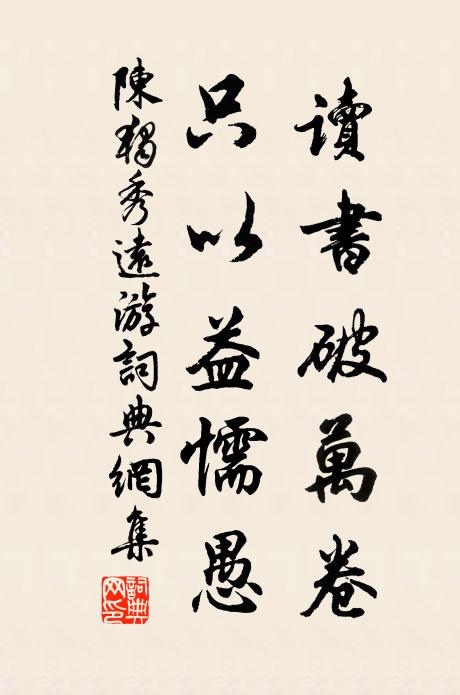 讀書破萬卷
只以益懦愚
陳獨秀遠游詞典網集
詞典網印